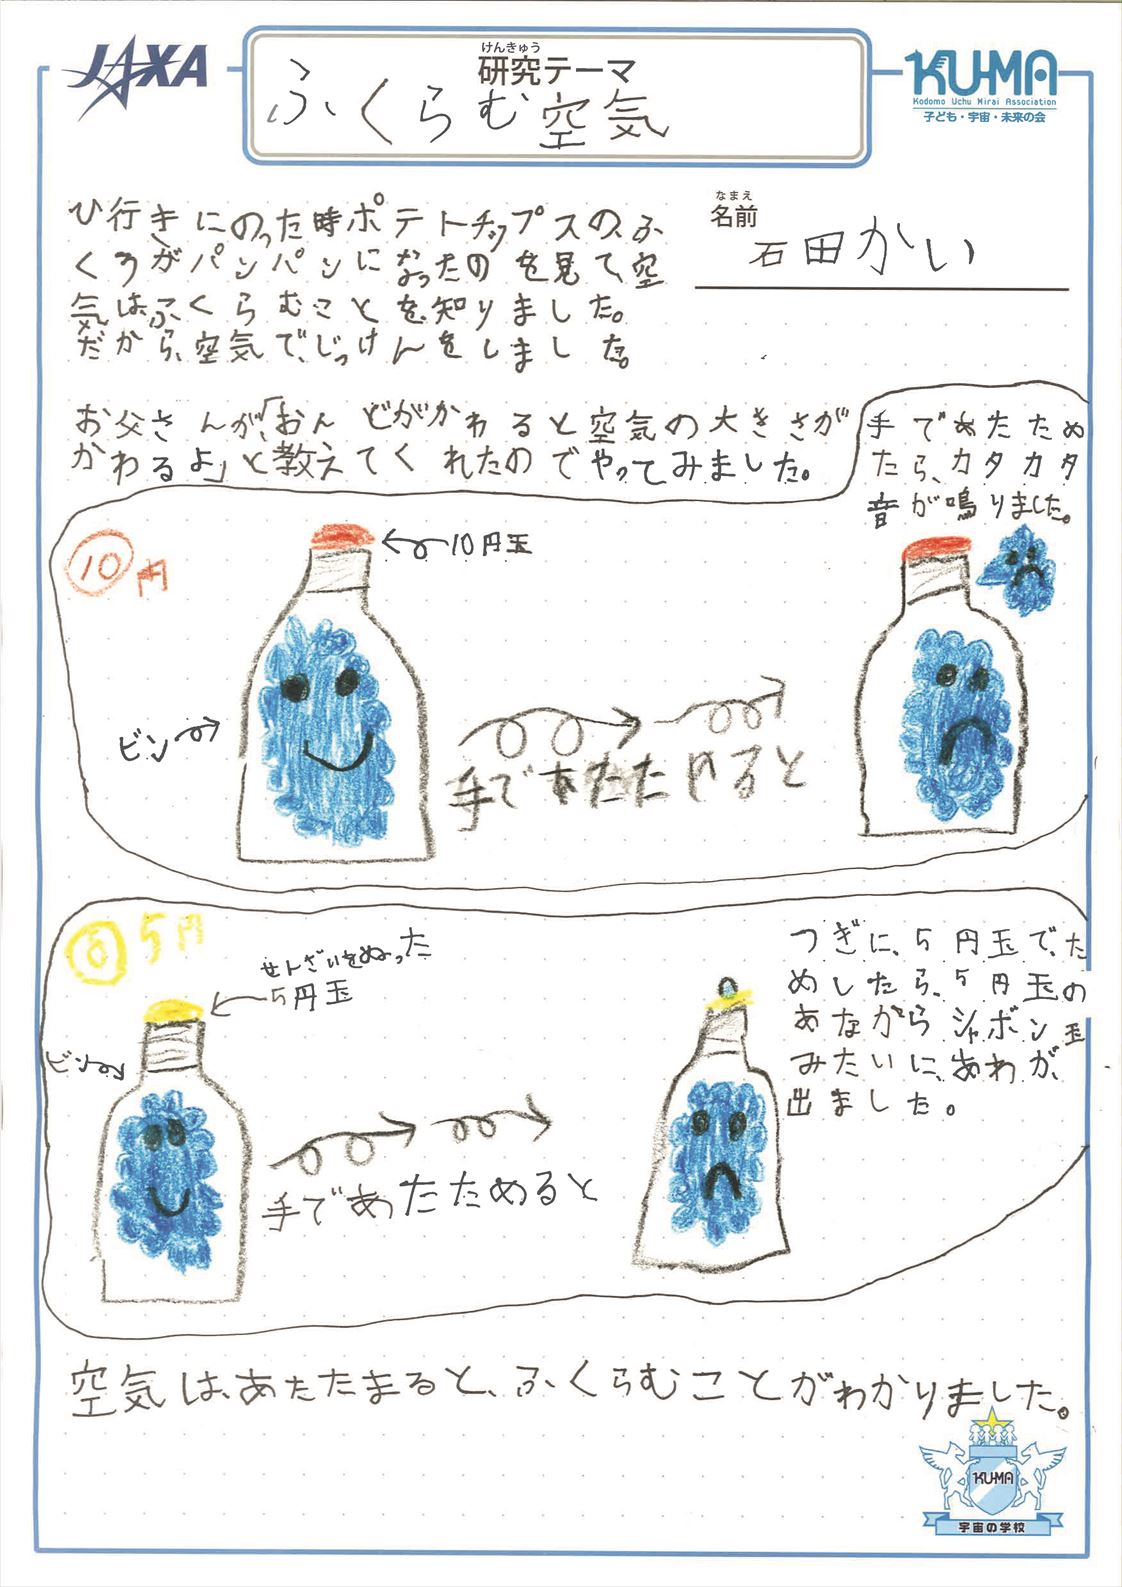 JAXA
けんきゅう
研究テーマ
ふくらむ空気
KU-MA
Kodomo Uchu Mirai Association
子ども・宇宙・未来の会
なまえ
名前
石田かい
ひ行きにのった時ポテトチップスの、ふ
くろがパンパンになったのを見て、空
気はふくらむことを知りました。
だから、空気で、じっけんをしました。
お父さんが、「おんどがかわると空気の大きさが
かわるよ」と教えてくれたのでやってみました。
手であたため
たら、カタカタ
音が鳴りました。
10円
10円玉
ビン
手であたためると
5円
せんざいをぬった
5円玉
ビン
手であたためると
つぎに、5円玉で、た
めしたら、5円玉の
あながらシャボン玉
みたいに、あわが、
出ました。
空気は、あたたまると、ふくらむことがわかりました。
KU-MA
宇宙の学校